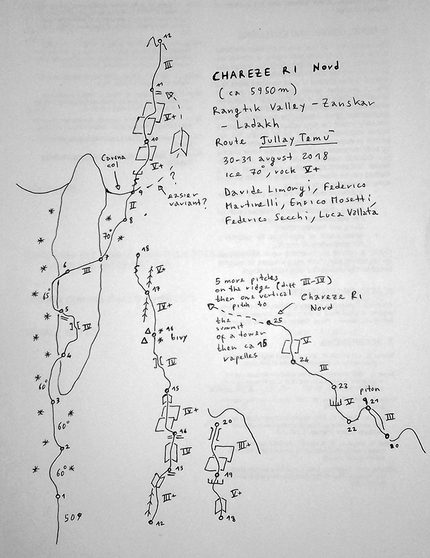 CHAREZE RI Nord
(ca 5950m)
Rangtik Valley - Zanskar
- Ladakh
Route Jullay Temu
30-31 august 2018
ice 70°, rock V+
Davide Limongi, Federico
Martinelli, Enrico Mosetti,
Federico Secchi, Luca Vallata
12
III
11
V+
10
V+
?
Corona
col
9
easier
variant?
II
8
70°
7
6
III
65°
5
IV
4
3
60°
2
60°
1
50°
18
17
IV+
16
bivy
IV
15
IV+
IV
13
III+
12
20
III+
19
V+
18
5 more pitches
on the ridge (diff III-IV)
then one vertical
pitch to
the
summit
of a tower
then ca 15
rapelles
Chareze RI
Nord
25
V
24
III
23
IV
22
piton
21
III
20